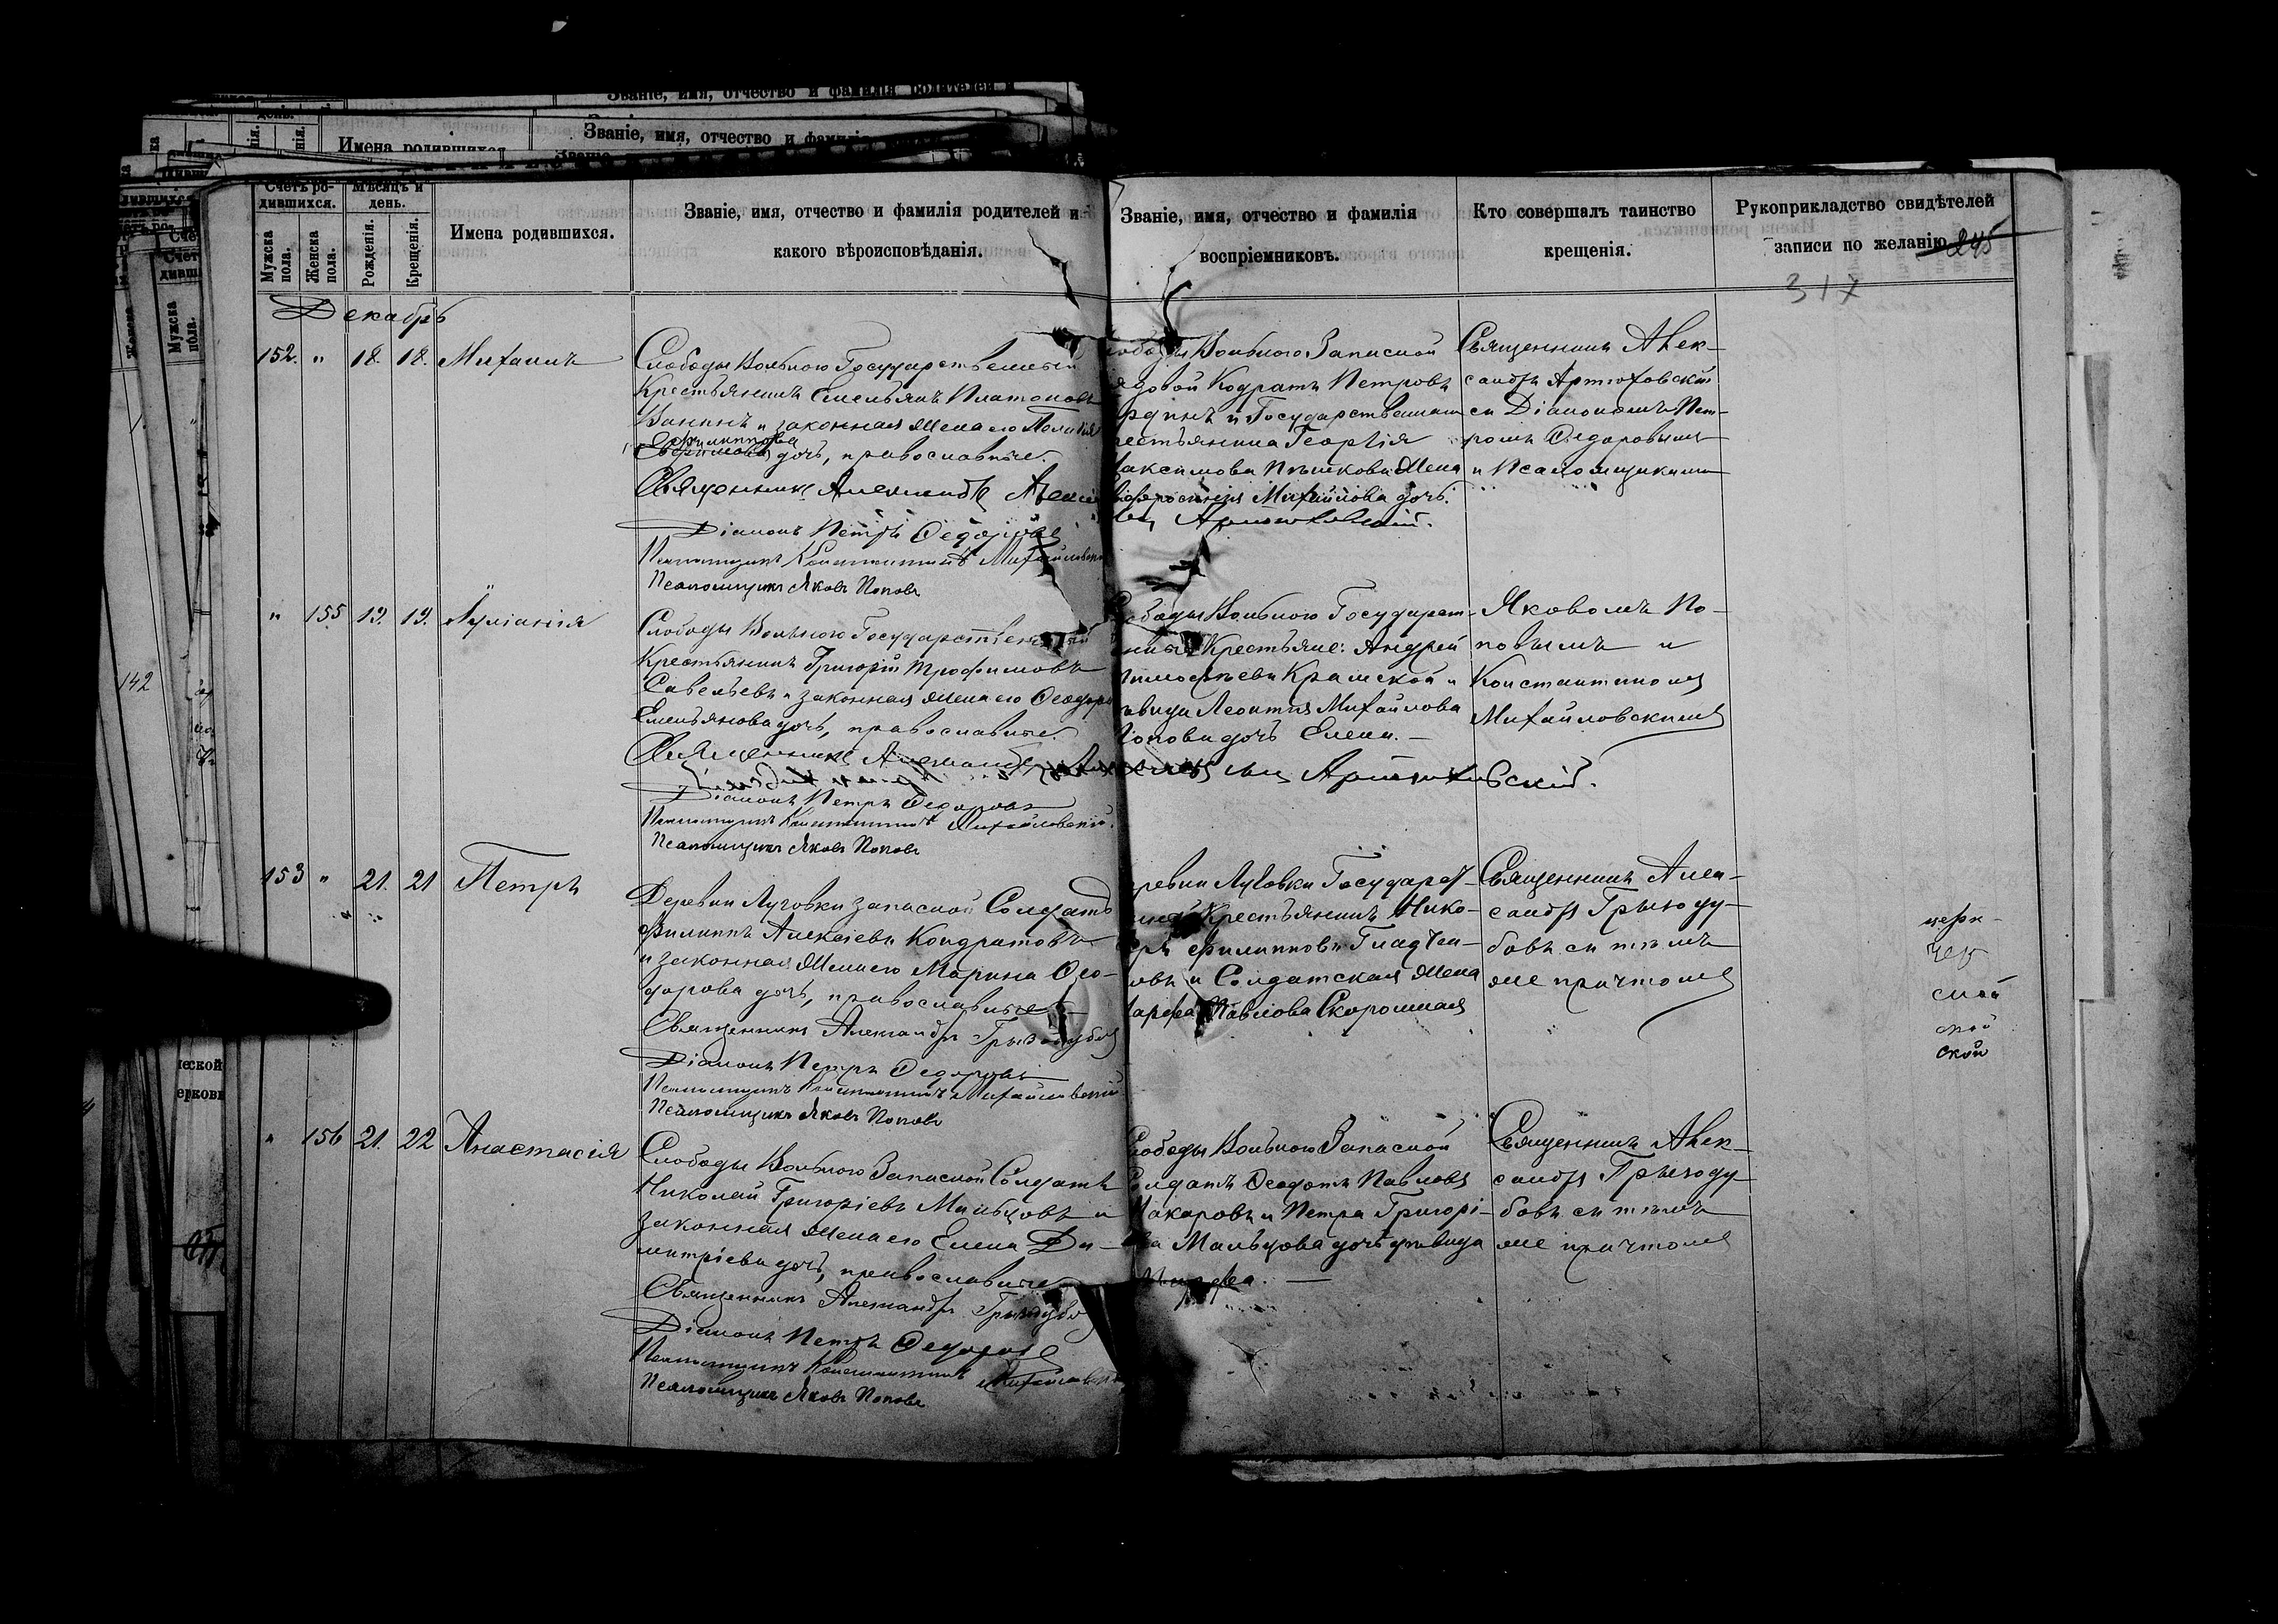 Званіе, имя, отчество и фамилія родителей и
Имена родившихся
Званіе, имя, отчество и фамилія
Счетъ ро-
дившихся.
Мѣсяцъ и
день.
Мужска
пола.
Женска
пола.
Рожденія.
Крещенія.
Имена родившихся.
Званіе, имя, отчество и фамилія родителей и
какого вѣроисповѣданія.
Званіе, имя, отчество и фамилія
воспріемниковъ.
Кто совершалъ таинство
крещенія.
Рукоприкладство свидѣтелей
записи по желанію
245
317
Декабрь
152. " 18. 18. Михаилъ
Слободы Вольного Государственный
Крестьянинъ Емельянъ Платоновъ
Ванинъ и законная жена его
Филиппова
Ефимова дочь, православные.
Священникъ Александръ
Діаконъ Петръ Ѳедоровъ
Псаломщикъ Константинъ Михайловскій
Псаломщикъ Яковъ Поповъ
Слободы Вольного Запасной
Кодратъ Петровъ
и Государственнаго
крестьянина Георгія
Максимова Пѣшкова жена
Михайлова дочь.
Артюховскій.
Священникъ Алек-
сандръ Артюховскій
съ Діакономъ Пет-
ромъ Ѳедоровымъ
и Псаломщиками
" 155 19. 19. Іуліанія
Слободы Вольного Государственный
Крестьянинъ Григорій Трофимовъ
Савельевъ и законная жена его Ѳеодора
Емельянова дочь, православные.
Священникъ Александръ Артюховскій.
Діаконъ Петръ Ѳедоровъ
Псаломщикъ Константинъ Михайловскій.
Псаломщикъ Яковъ Поповъ
Слободы Вольного Государст-
венные Крестьяне: Андрей
Тимофѣевъ Крамской и
дѣвица Леонтія Михайлова
Попова дочь Елена. —
Яковомъ По-
повымъ и
Константиномъ
Михайловскимъ
153 " 21. 21 Петръ
Деревни Луговки запасной Солдатъ
Филиппъ Алексіевъ Кондратовъ
и законная жена его Марина Ѳео-
дорова дочь, православные
Священникъ Александръ Грызодубовъ
Діаконъ Петръ Ѳедоровъ
Псаломщикъ Константинъ Михайловскій
Псаломщикъ Яковъ Поповъ
Деревни Луговки Государст-
венный Крестьянинъ Нико-
лай Филипповъ
и Солдатская жена
Марфа Павлова Скорошная
Священникъ Алек-
сандръ Грызоду-
бовъ съ тѣмъ
же причтомъ
" 156 21. 22 Анастасія
Слободы Вольного Запасной Солдатъ
Николай Григоріевъ Мальцовъ и
законная жена его Елена Ди-
митріева дочь, православные
Священникъ Александръ Грызодубовъ
Діаконъ Петръ Ѳедоровъ
Псаломщикъ Константинъ Михайловскій
Псаломщикъ Яковъ Поповъ
Слободы Вольного Запасной
Солдатъ Ѳеодотъ Павловъ
Макаровъ и Петра Григорі-
ева Мальцова дочь дѣвица
Марфа. —
Священникъ Алек-
сандръ Грызоду-
бовъ съ тѣмъ
же причтомъ
142
ской